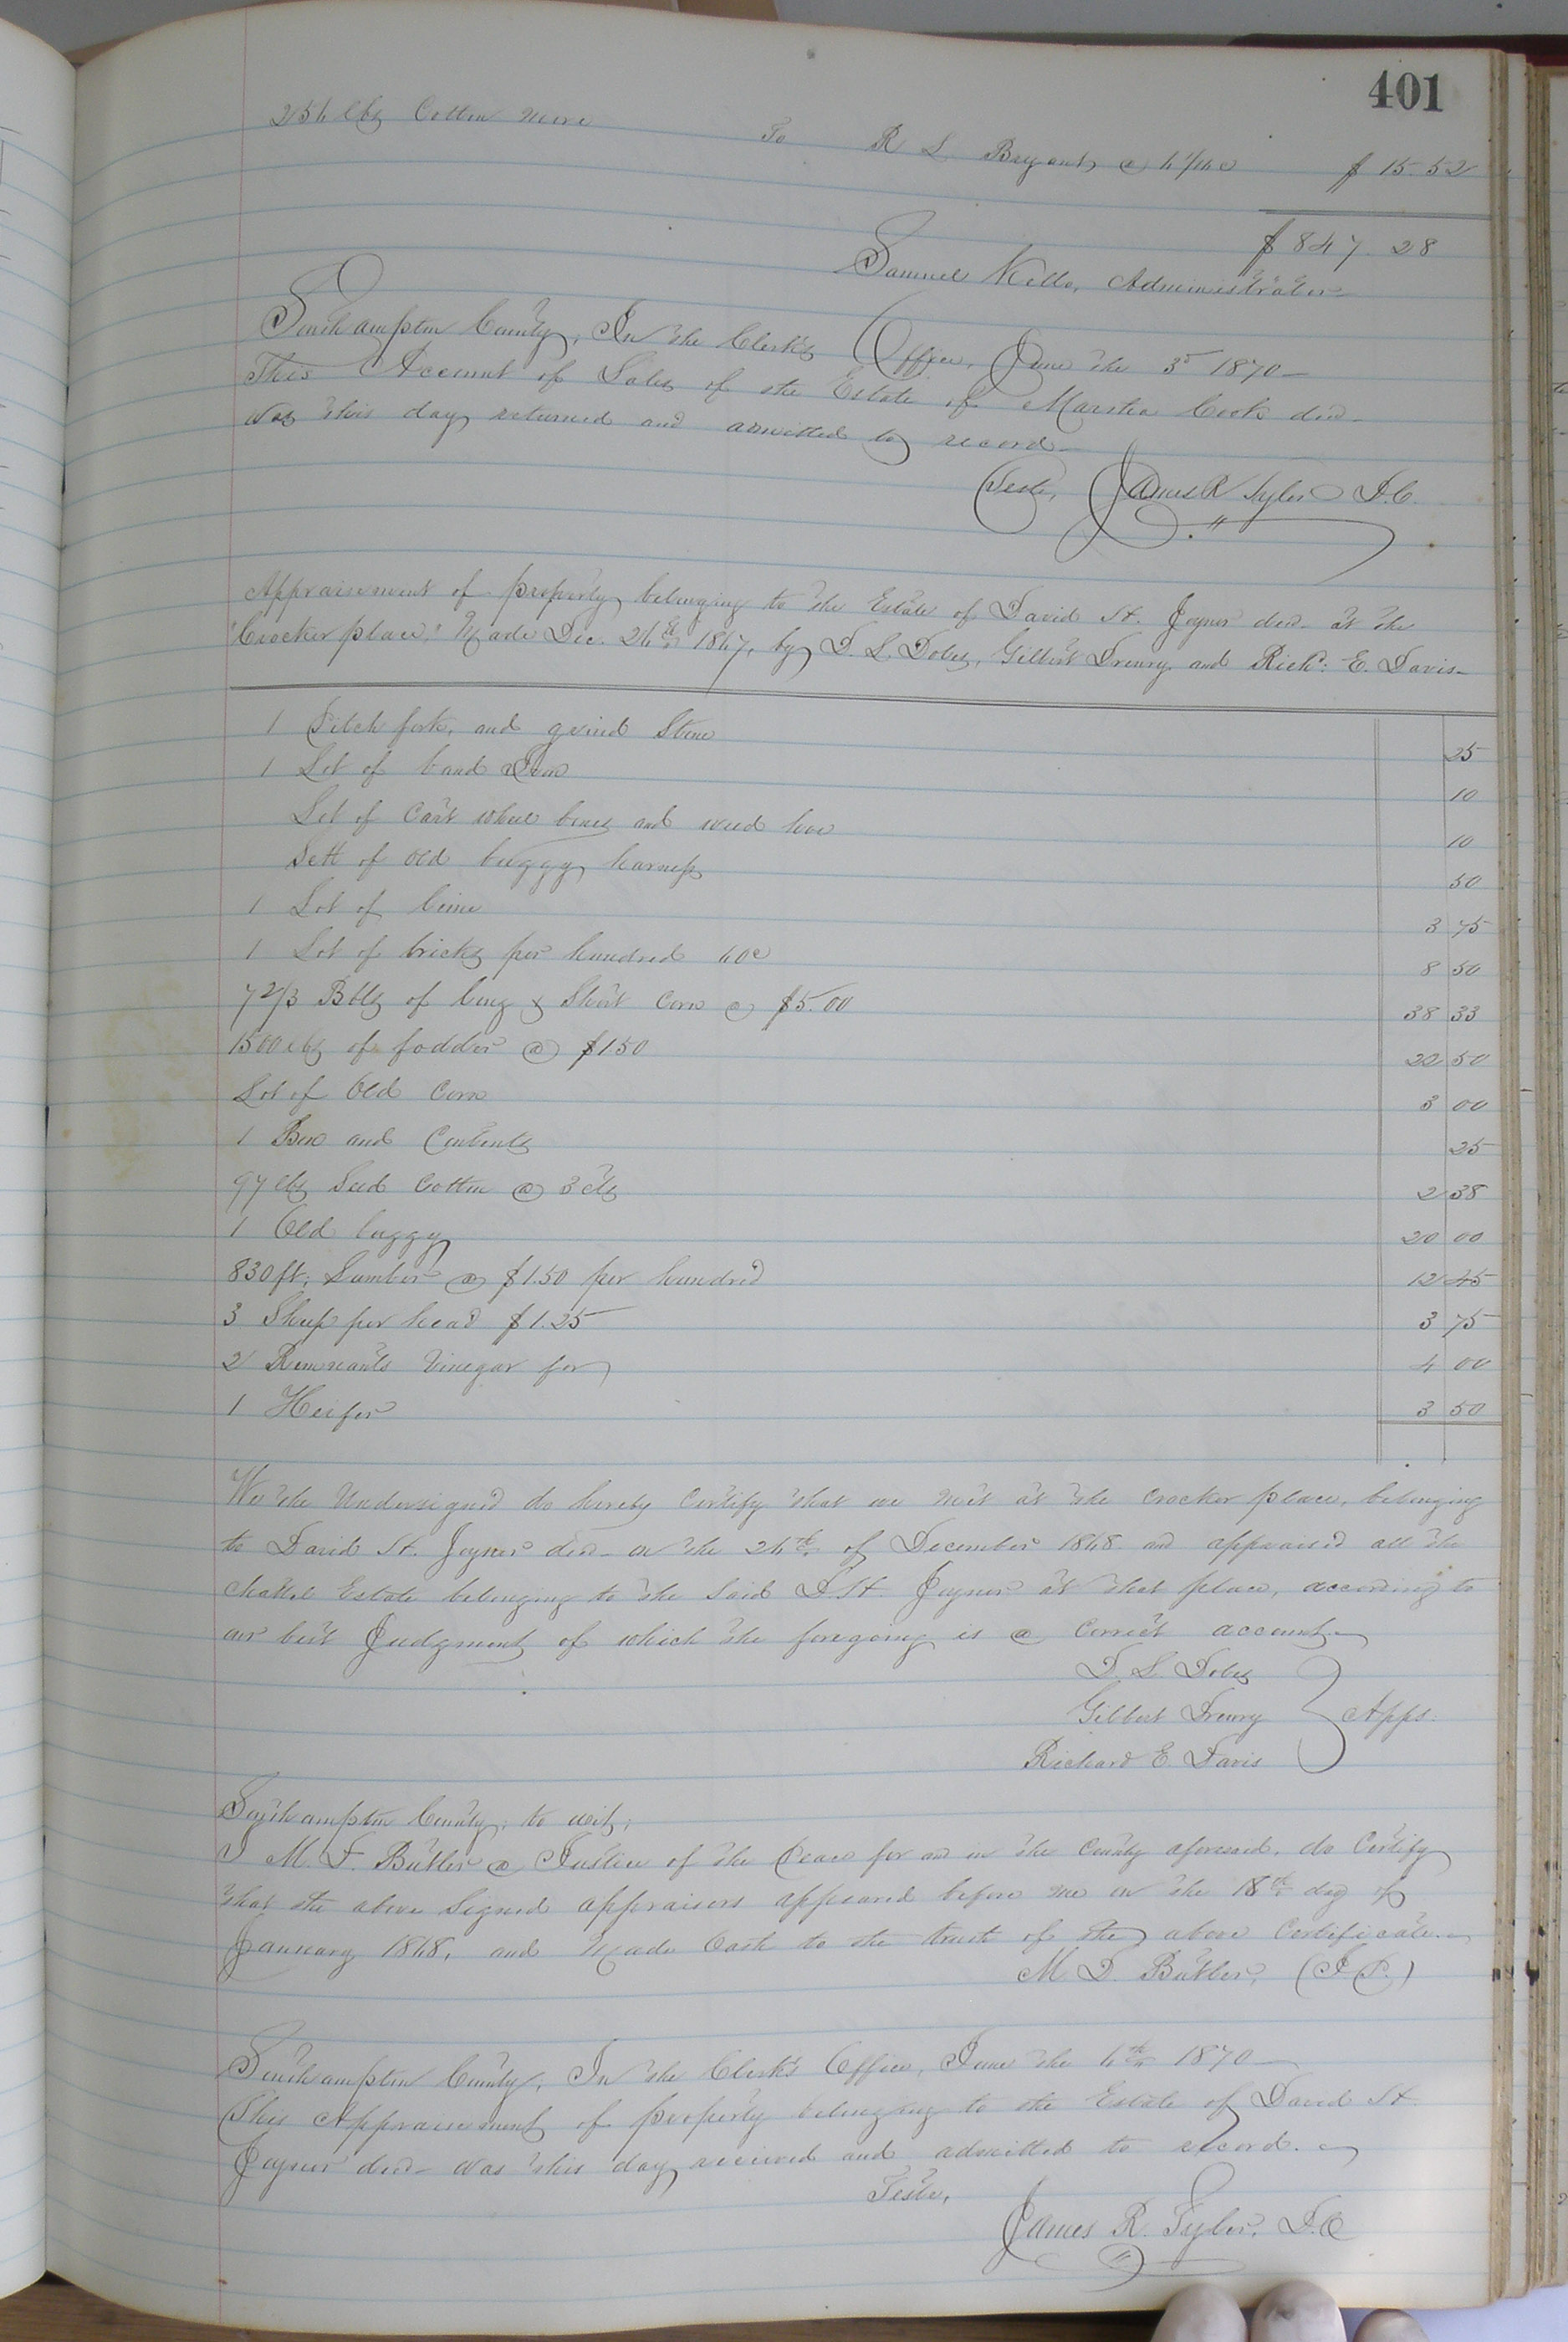 401
256 lbs Cotton more
To R L Bryant, @ 6 1/16 c $ 15.52
$ 847.28
Samuel Kello, Administrator
Southampton County, In the Clerk's Office, June the 3d 1870—
This Account of Sales of the Estate of Martha Cook decd—
was this day returned and admitted to record—
Teste, James R Tyler D.C.
Appraisement of property belonging to the Estate of David H. Joyner decd— at the
"Crocker place," Made Dec. 26th 1867, by D. L. Doles, Gilbert Drewry and Richd: E. Davis—
1 Pitch fork, and grind Stone 25
1 Lot of band Iron 10
Lot of Cart wheel boxes and weed hoe 10
Sett of old buggy harness 50
1 Lot of lime 3 75
1 Lot of bricks per hundred 60c 8 50
7 2/3 Bbls of long & Short Corn @ $5.00 38 33
1500 lbs of fodder @ $1.50 22 50
Lot of Old Corn 3 00
1 Box and Contents 25
97 lbs Seed Cotton @ 3 cts 2 38
1 Old buggy 20 00
830 ft; Lumber @ $1.50 per hundred 12 45
3 Sheep per head $1.25 3 75
2 Remnants Vinegar for 4 00
1 Heifer 3 50
We the Undersigned do hereby Certify that we met at the Crocker place, belonging
to David H. Joyner decd— on the 26th of December 1868 and appraised all the
chattel Estate belonging to the Said D. H. Joyner at that place, according to
our best Judgment of which the foregoing is a correct account.—
D. L. Doles
Gilbert Drewry Apps.
Richard E. Davis
Southampton County; to wit;
I M. D. Butler a Justice of the Peace for and in the County aforesaid, do Certify
that the above Signed appraisors appeared before me on the 18th day of
January 1868, and Made Oath to the truth of the above Certificate.—
M. D. Butler, (J.P.)
Southampton County, In the Clerk's Office, June the 6th 1870—
This Appraisement of property belonging to the Estate of David H.
Joyner decd— was this day received and admitted to record.—
Teste,
James R. Tyler, D.C